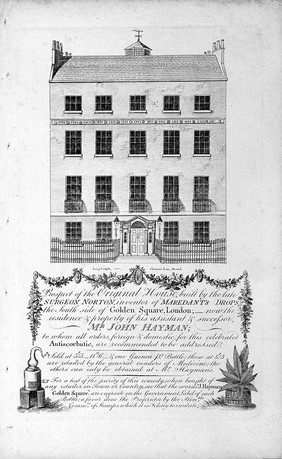 Prospect of the Original House, built by the late
SURGEON NORTON, inventor of MAREDANT'S DROPS,
the South side of Golden Square, London; — now the
residence & property of his assistant & successor,
Mr. JOHN HAYMAN;
to whom all orders, foreign & domestic for this celebrated
Antiscorbutic, are recommended to be addressed.
Sold at &one Guinea pr. Bottle; those at
are retailed by the general venders of Medicine; the
others can only be obtained at Mr. Hayman's.
For a test of the purity of this remedy, when bought of
any retailer, in Town or Country, see that the words J. Hayman
Golden Square, are engrav'd on the Government Label of each
Bottle; a favor done the Proprietor by the Honble.
Commrs. of Stamps which it is felony to imitate.